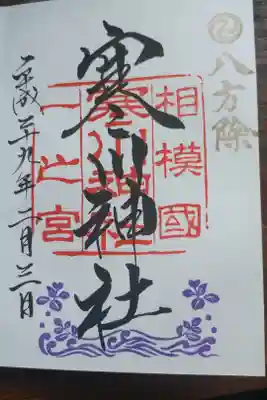 八方除
相模國
寒川神社
一之宮
寒川神社
平成二十九年二月三日